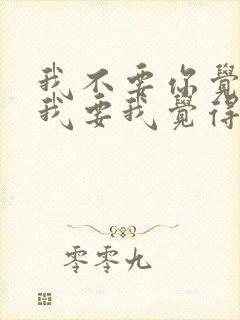 我不要你覺
我要我覺得
零零九